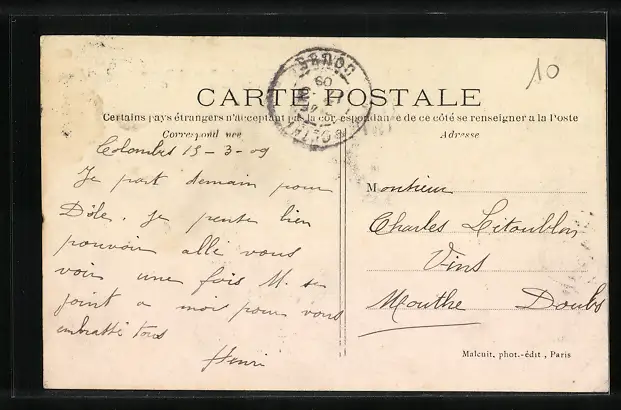 10
CARTE POSTALE
Certains pays étrangers n'acceptant pas la correspondance de ce côté se renseigner a la Poste
Correspondance
Adresse
Colombes 13-3-09
Je part demain pour
Dôle. Je pense bien
pouvoir allé vous
voir une fois M. se
joint a moi pour vous
embrassé tous
Henri
Monsieur
Charles Letoublon
Vins
Mouthe Doubs
Malcuit, phot.-édit, Paris